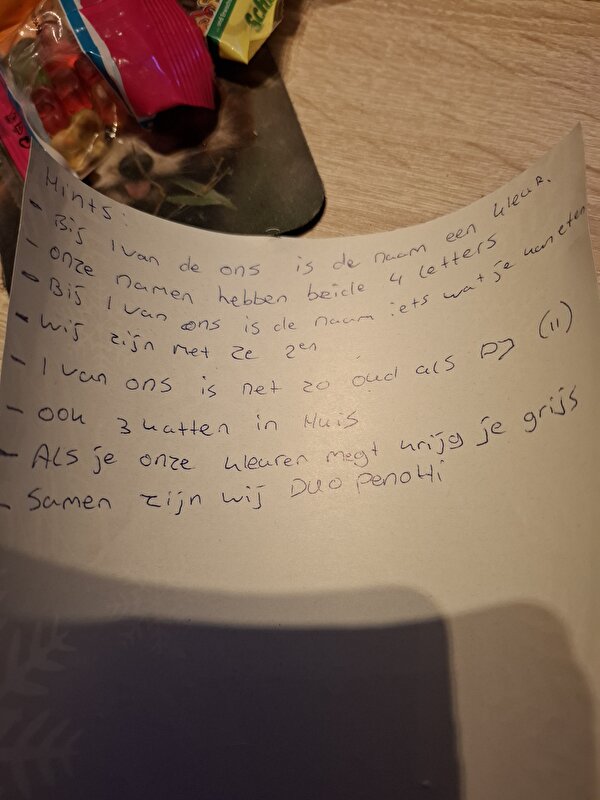 Sch
Hints:
- Bij 1 van de ons is de naam een kleur.
- onze namen hebben beide 4 letters
- Bij 1 van ons is de naam iets wat je kan eten
- wij zijn met ze 2en
- 1 van ons is net zo oud als DJ (11)
- ook 3 katten in Huis
- ALS je onze kleuren megt krijg je grijs
- Samen zijn wij DUO penotti